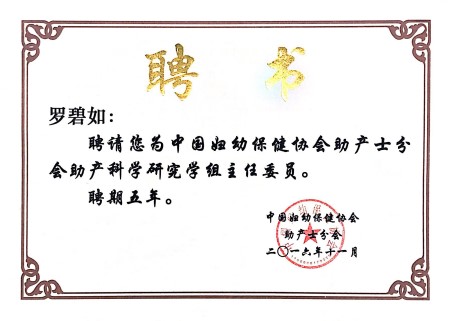 聘书
罗碧如:
聘请您为中国妇幼保健协会助产士分
会助产科学研究学组主任委员。
聘期五年。
中国妇幼保健协会
助产士分会
二〇一六年十一月